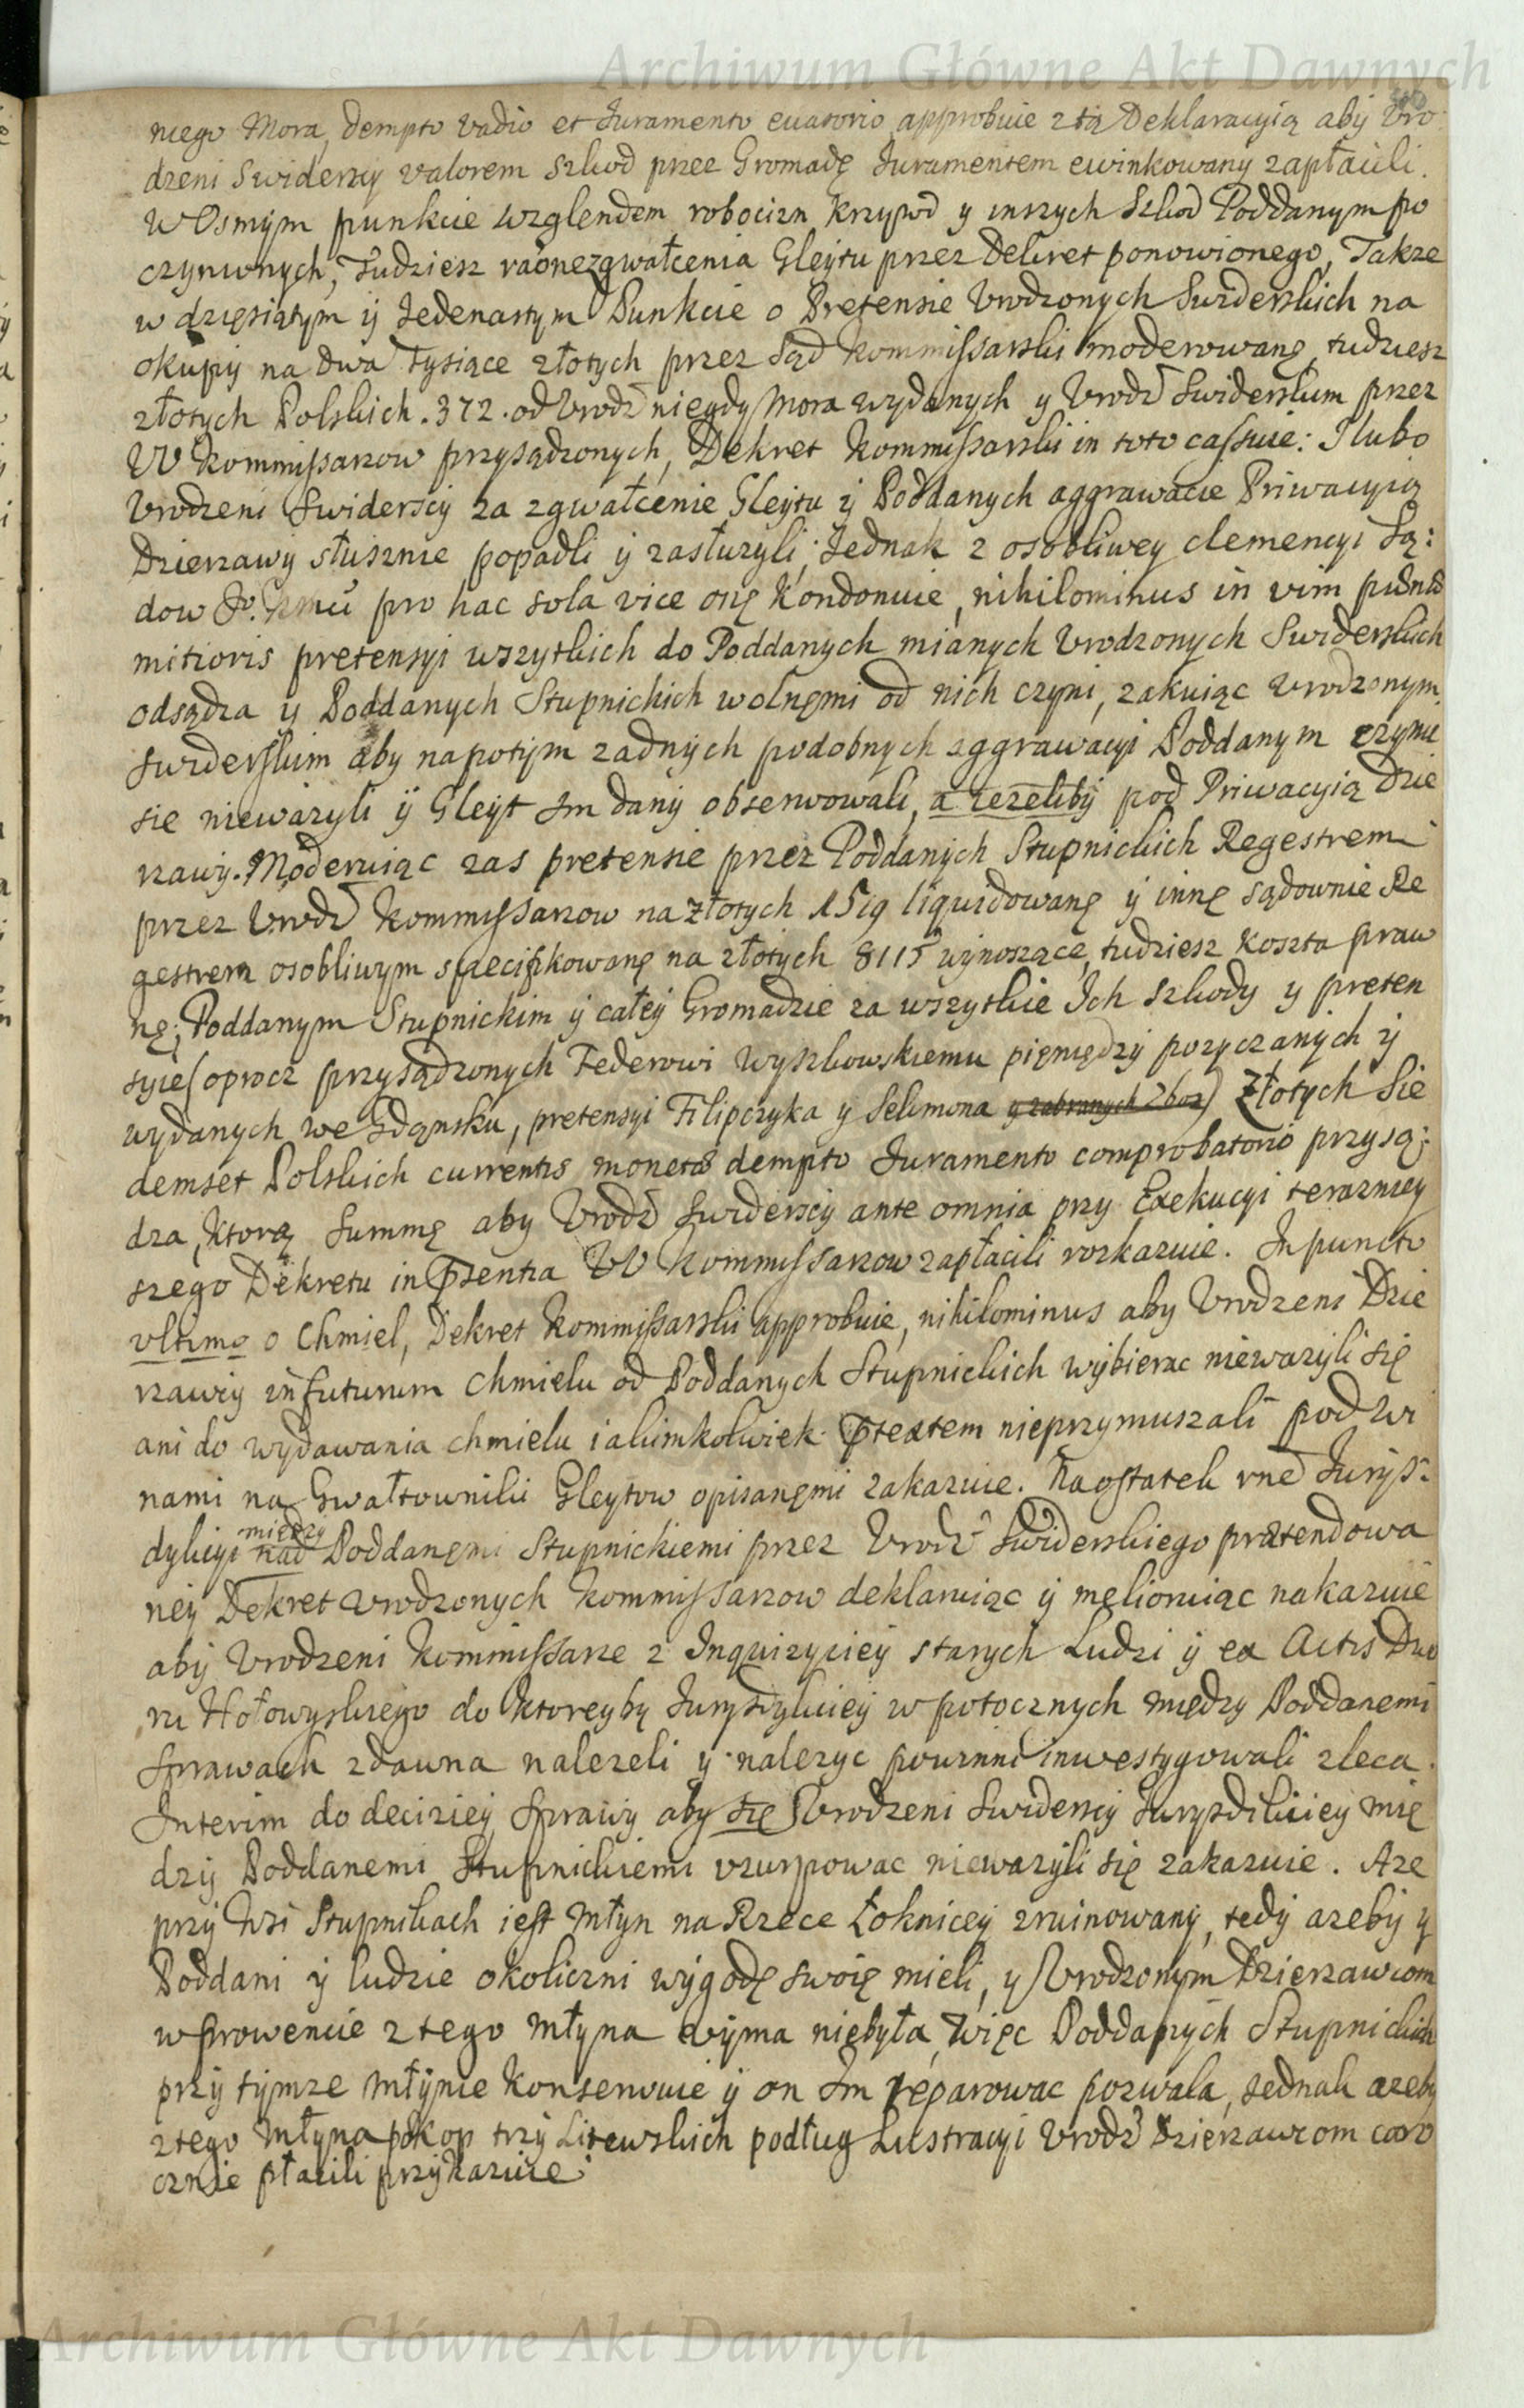 Archiwum Główne Akt Dawnych
niego Mora, dempto Vadio et Juramento euasorio approbuie z tą Deklaracyią aby Vro
dzeni Swiderscy valorem szkod przez Gromadę Juramentem ewinkowany zapłacili.
W Osmym punkcie wzglendem robocizn krzywd y inszych Szkod Poddanym po
czynionych, Tudziesz raone zgwałcenia Gleytu przez Dekret ponowionego, Takze
w dzięsiątym y Jedenastym Punkcie o Pretensie Vrodzonych Swiderskich na
okupy na dwa Tysiące złotych przez Sąd Kommissarski moderowanę, tudziesz
złotych Polskich .372. od Vrodz niegdy Mora wydanych y Vrodz Swiderskim przez
W Kommissarzow przysądzonych, Dekret Kommissarski in toto cassuie: I lubo
Vrodzeni Swiderscy za zgwałcenie Gleytu y Poddanych aggrawacie Priwacyią
Dzierzawy słusznie popadli y zasłuzyli, Jednak z osobliwey clemencyi Są:
dow pro hac sola vice onę Kondonuie, nihilominus in vim
mitioris pretensyi wszytkich do Poddanych mianych Vrodzonych Swiderskich
odsądza y Poddanych Stupnickich wolnęmi od nich czyni, zakuiąc Vrodzonym
Swiderskim aby napotym zadnych podobnych aggrawacyi Poddanym czynic
sie niewazyli y Gleyt Im dany obserwowali, a iezeliby pod Priwacyią Dzie
rzawy. Moderuiąc zas pretensie przez Poddanych Stupnickich Regestrem
przez Vrodz Kommissarzow na złotych 1519 liquidowanę y innę sądownie Re
gestrem osobliwym specifikowanę na złotych 8115 wynoszące, tudziesz koszta praw
nę; Poddanym Stupnickim y całey Gromadzie za wszytkie Ich szkody y preten
syie (oprocz przysądzonych Federowi Wyszkowskiemu pięniędzy pozyczanych y
wydanych we Gdąnsku, pretensyi Filipczyka y Selimona y zabranych Zboz) Złotych Sie
demset Polskich currentis moneta dempto Juramento comprobatorio przysą:
dza, Ktorą Summę aby Vrodz Swiderscy ante omnia przy Exekucyi terazniey
szego Dekretu in Psentia W Kommissarzow zapłacili rozkazuie. In puncto
vltimo o Chmiel, Dekret Kommissarski approbuie, nihilominus aby Vrodzeni Dzie
rzawcy in futurum chmielu od Poddanych Stupnickich wybierac niewazyli się
ani do wydawania chmielu iakimkolwiek Ptextem nieprzymuszali pod wi
nami na Gwałtowniki Gleytow opisanęmi zakazuie. Na ostatek rne Jurys:
dykcyi nad między Poddanęmi Stupnickiemi przez Vrodz Swiderskiego prætendowa
ney Dekret Vrodzonych Kommissarzow deklaruiąc y melioruiąc nakazuie
aby Vrodzeni Kommissarze z Inquizyciey starych Ludzi y ex Actis Dwo
ru Hołowyskiego do Ktoreyby Jurysdykciey w potocznych między Poddanemi
Sprawach zdawna nalezeli y nalezyc powinni inwestygowali zleca.
Interim do deciziey Sprawy aby się Vrodzeni Swiderscy Jurysdikciey mię
dzy Poddanemi Stupnickiemi vzurpowac niewazyli się zakazuie. Aze
przy Wsi Stupnikach iest Młyn na Rzece Łoknicey zruinowany, tedy azeby y
Poddani y ludzie okoliczni wygodę swoię mieli, y Vrodzonym Dzierzawcom
w prowencie z tego Młyna vyma niebyła, Więc Poddanych Stupnickich
przy tymze Młynie konserwuie y on Im reparowac pozwala, Jednak azeby
z tego Młyna po kop trzy Litewskich podług Lustracyi Vrodz Dzierzawcom coro
cznie płacili przykazuie.
Archiwum Główne Akt Dawnych